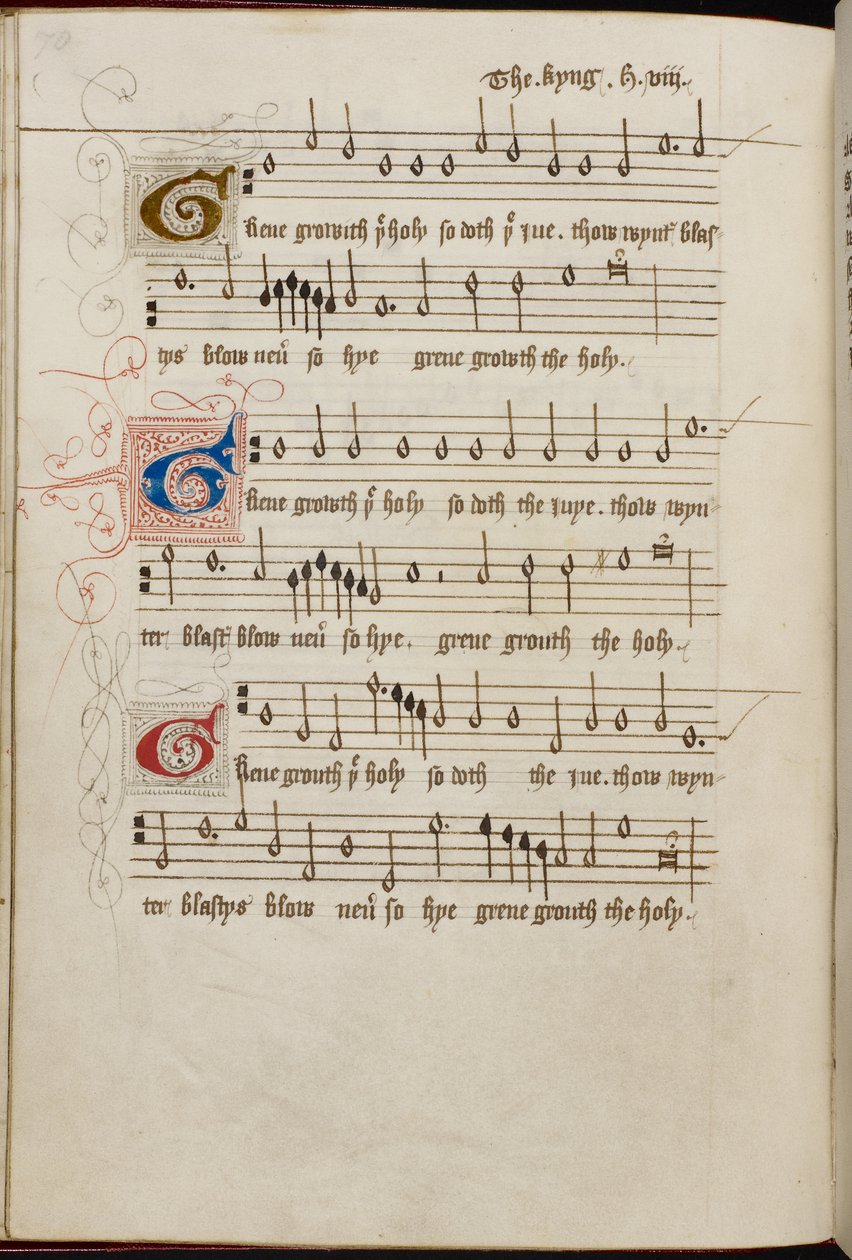 70
The.kyng. H.viij.
Grene growith þͤ holy so doth þͤ Iue. thow wynt blas-
tys blow neu̾ so hye grene growth the holy.
Grene growth þͤ holy so doth the Iuye. thow wyn-
ter blast blow neu̾ so hye. grene grouth the holy.
Grene grouth þͤ holy so doth the Iue. thow wyn-
ter blastys blow neu̾ so hye grene grouth the holy.